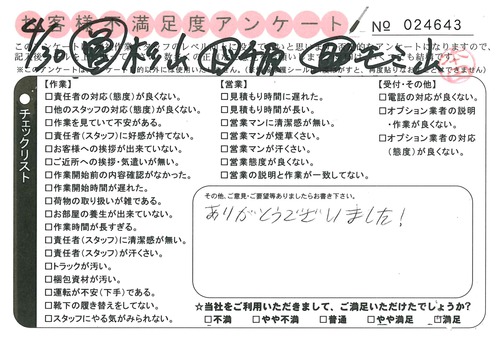 お客様満足度アンケート
No 024643
4/30
チェックリスト
【作業】
□責任者の対応(態度)が良くない。
□他のスタッフの対応(態度)が良くない。
□作業を見ていて不安がある。
□責任者(スタッフ)に好感が持てない。
□お客様への挨拶が出来ていない。
□ご近所への挨拶・気遣いが無い。
□作業開始前の内容確認がなかった。
□作業開始時間が遅れた。
□荷物の取り扱いが雑である。
□お部屋の養生が出来ていない。
□作業時間が長すぎる。
□責任者(スタッフ)に清潔感が無い。
□責任者(スタッフ)が汗くさい。
□トラックが汚い。
□梱包資材が汚い。
□運転が不安(下手)である。
□靴下の履き替えをしてない。
□スタッフにやる気がみられない。
【営業】
□見積もり時間に遅れた。
□見積もり時間が長い。
□営業マンに清潔感が無い。
□営業マンが煙草くさい。
□営業マンが汗くさい。
□営業態度が良くない。
□営業の説明と作業が一致してない。
【受付・その他】
□電話の対応が良くない。
□オプション業者の説明
・作業が良くない。
□オプション業者の対応
(態度)が良くない。
その他、ご意見・ご要望等ありましたらお書き下さい。
ありがとうございました!
☆当社をご利用いただきまして、ご満足いただけたでしょうか?
□不満 □やや不満 □普通 □やや満足 □満足